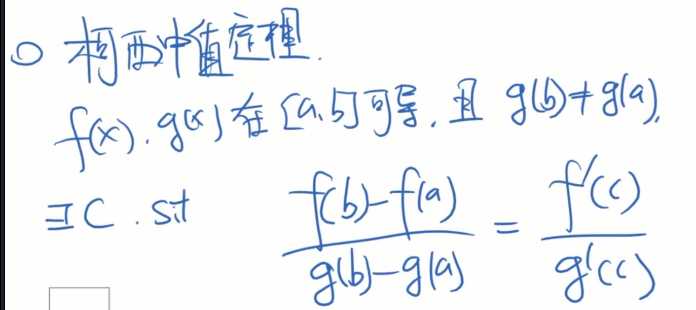 ○ 柯西中值定理.
f(x), g(x) 在 [a,b] 可导, 且 g(b)≠g(a),
∃ C . s.t (f(b)-f(a))/(g(b)-g(a)) = f'(c)/g'(c)